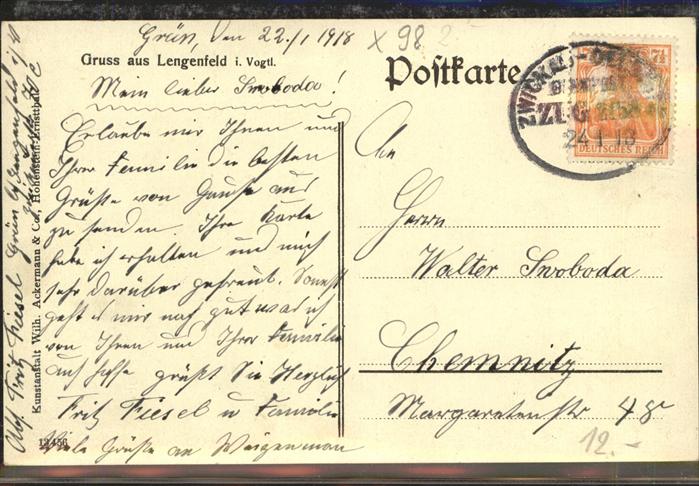 Grün, den 22./1 1918
x 98
Gruss aus Lengenfeld i. Vogtl.
Postkarte
Mein lieber Swoboda!
Erlaube mir Ihnen und
Ihrer Familie die besten
Grüße von Hause aus
zu senden. Ihre Karte
habe ich erhalten und mich
sehr darüber gefreut. Sonst
geht es mir noch gut was ich
von Ihnen und Ihrer Familie
auch hoffe grüßt Sie Herzlich
Fritz Fiesel u Familie
Viele Grüße an
12456
Kunstanstalt Wilh. Ackermann & Co., Hohenstein-Ernstthal
Abs. Fritz Fiesel Grün b/ Lengenfeld i/V
ZWICKAU-
ZUG
24 1 18
7½
DEUTSCHES REICH
An
Herrn
Walter Swoboda
Chemnitz
Margaretenstr 48
12.-